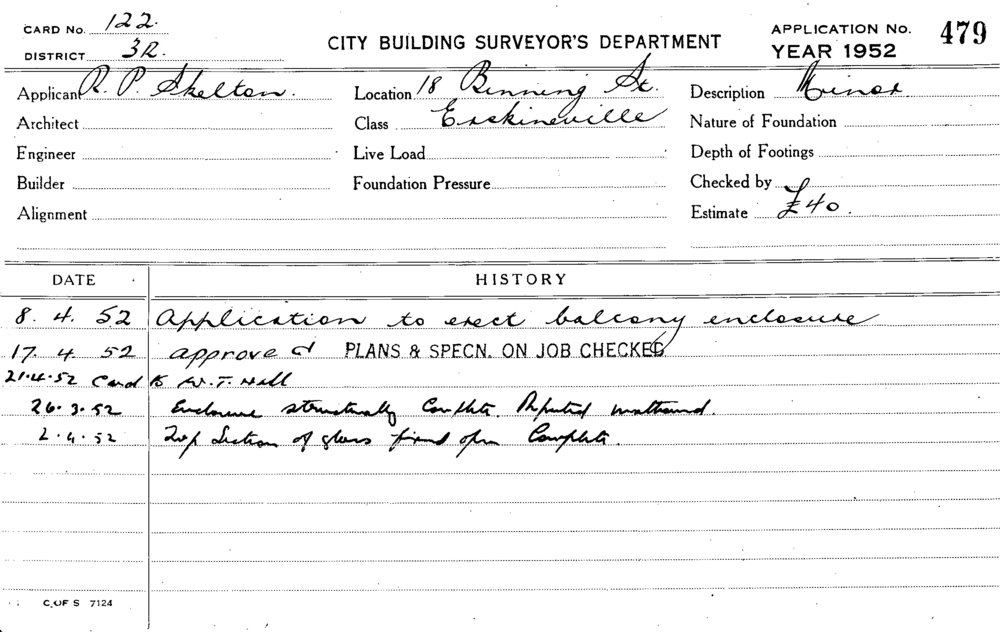 CARD No. 122.
DISTRICT 3R.
CITY BUILDING SURVEYOR'S DEPARTMENT
APPLICATION No. 479
YEAR 1952
Applicant R. P. Skelton.
Location 18 Binning St.
Description Minor
Architect
Class Erskineville
Nature of Foundation
Engineer
Live Load
Depth of Footings
Builder
Foundation Pressure
Checked by
Alignment
Estimate £40.
DATE HISTORY
8. 4. 52 Application to erect balcony enclosure
17. 4. 52 approved PLANS & SPECN. ON JOB CHECKED
21.4.52 Card to W. T. Hall
26.3.52 Enclosure structurally Complete.
2.4.52 Top Section of glass fixed open Complete.
C. OF S 7124